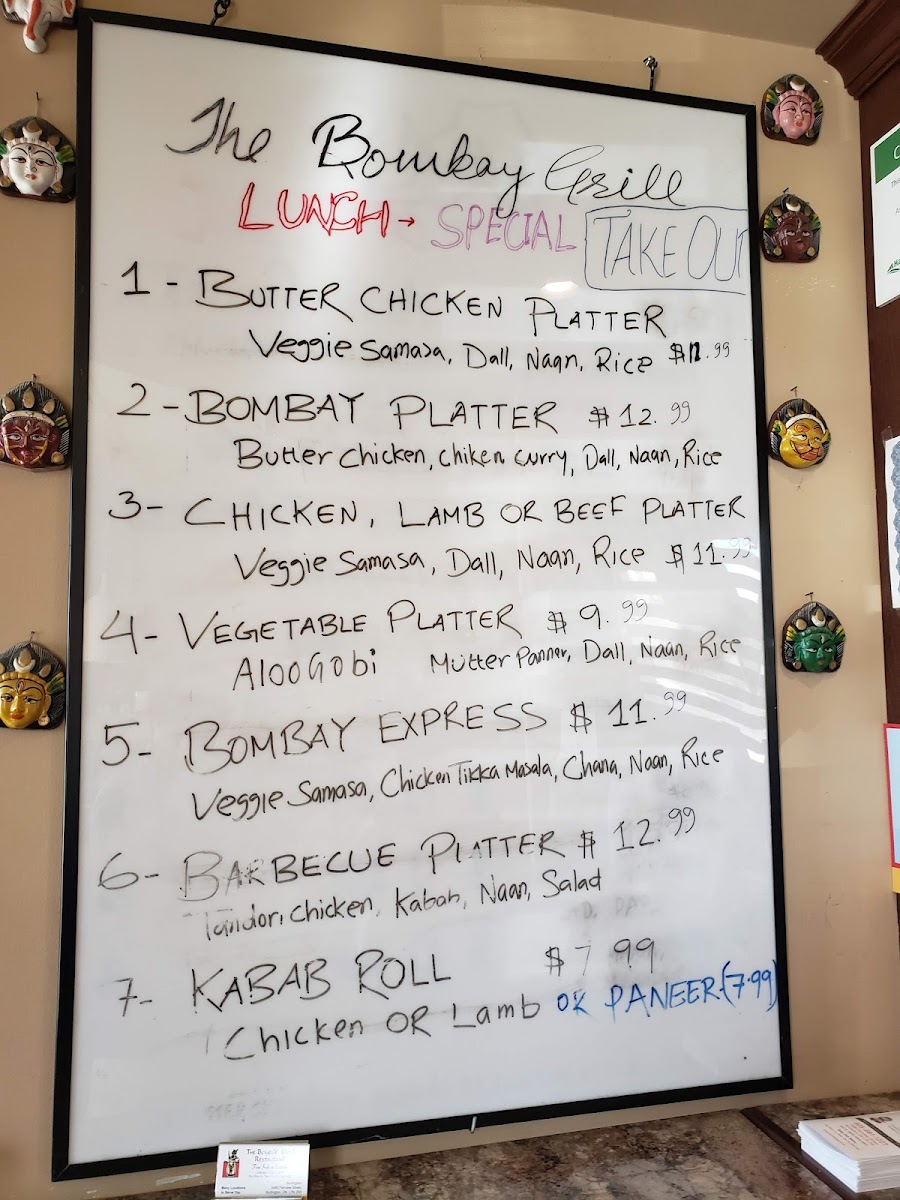 The Bombay Grill
LUNCH → SPECIAL TAKE OUT
1 - BUTTER CHICKEN PLATTER
Veggie Samasa, Dall, Naan, Rice $11.99
2 - BOMBAY PLATTER $12.99
Butter Chicken, chiken curry, Dall, Naan, Rice
3 - CHICKEN, LAMB OR BEEF PLATTER
Veggie Samasa, Dall, Naan, Rice $11.99
4 - VEGETABLE PLATTER $9.99
Aloo Gobi Mutter Panner, Dall, Naan, Rice
5 - BOMBAY EXPRESS $11.99
Veggie Samasa, Chicken Tikka Masala, Chana, Naan, Rice
6 - BARBECUE PLATTER $12.99
Tandori Chicken, Kabab, Naan, Salad
7 - KABAB ROLL $7.99
Chicken OR Lamb OR PANEER (7.99)